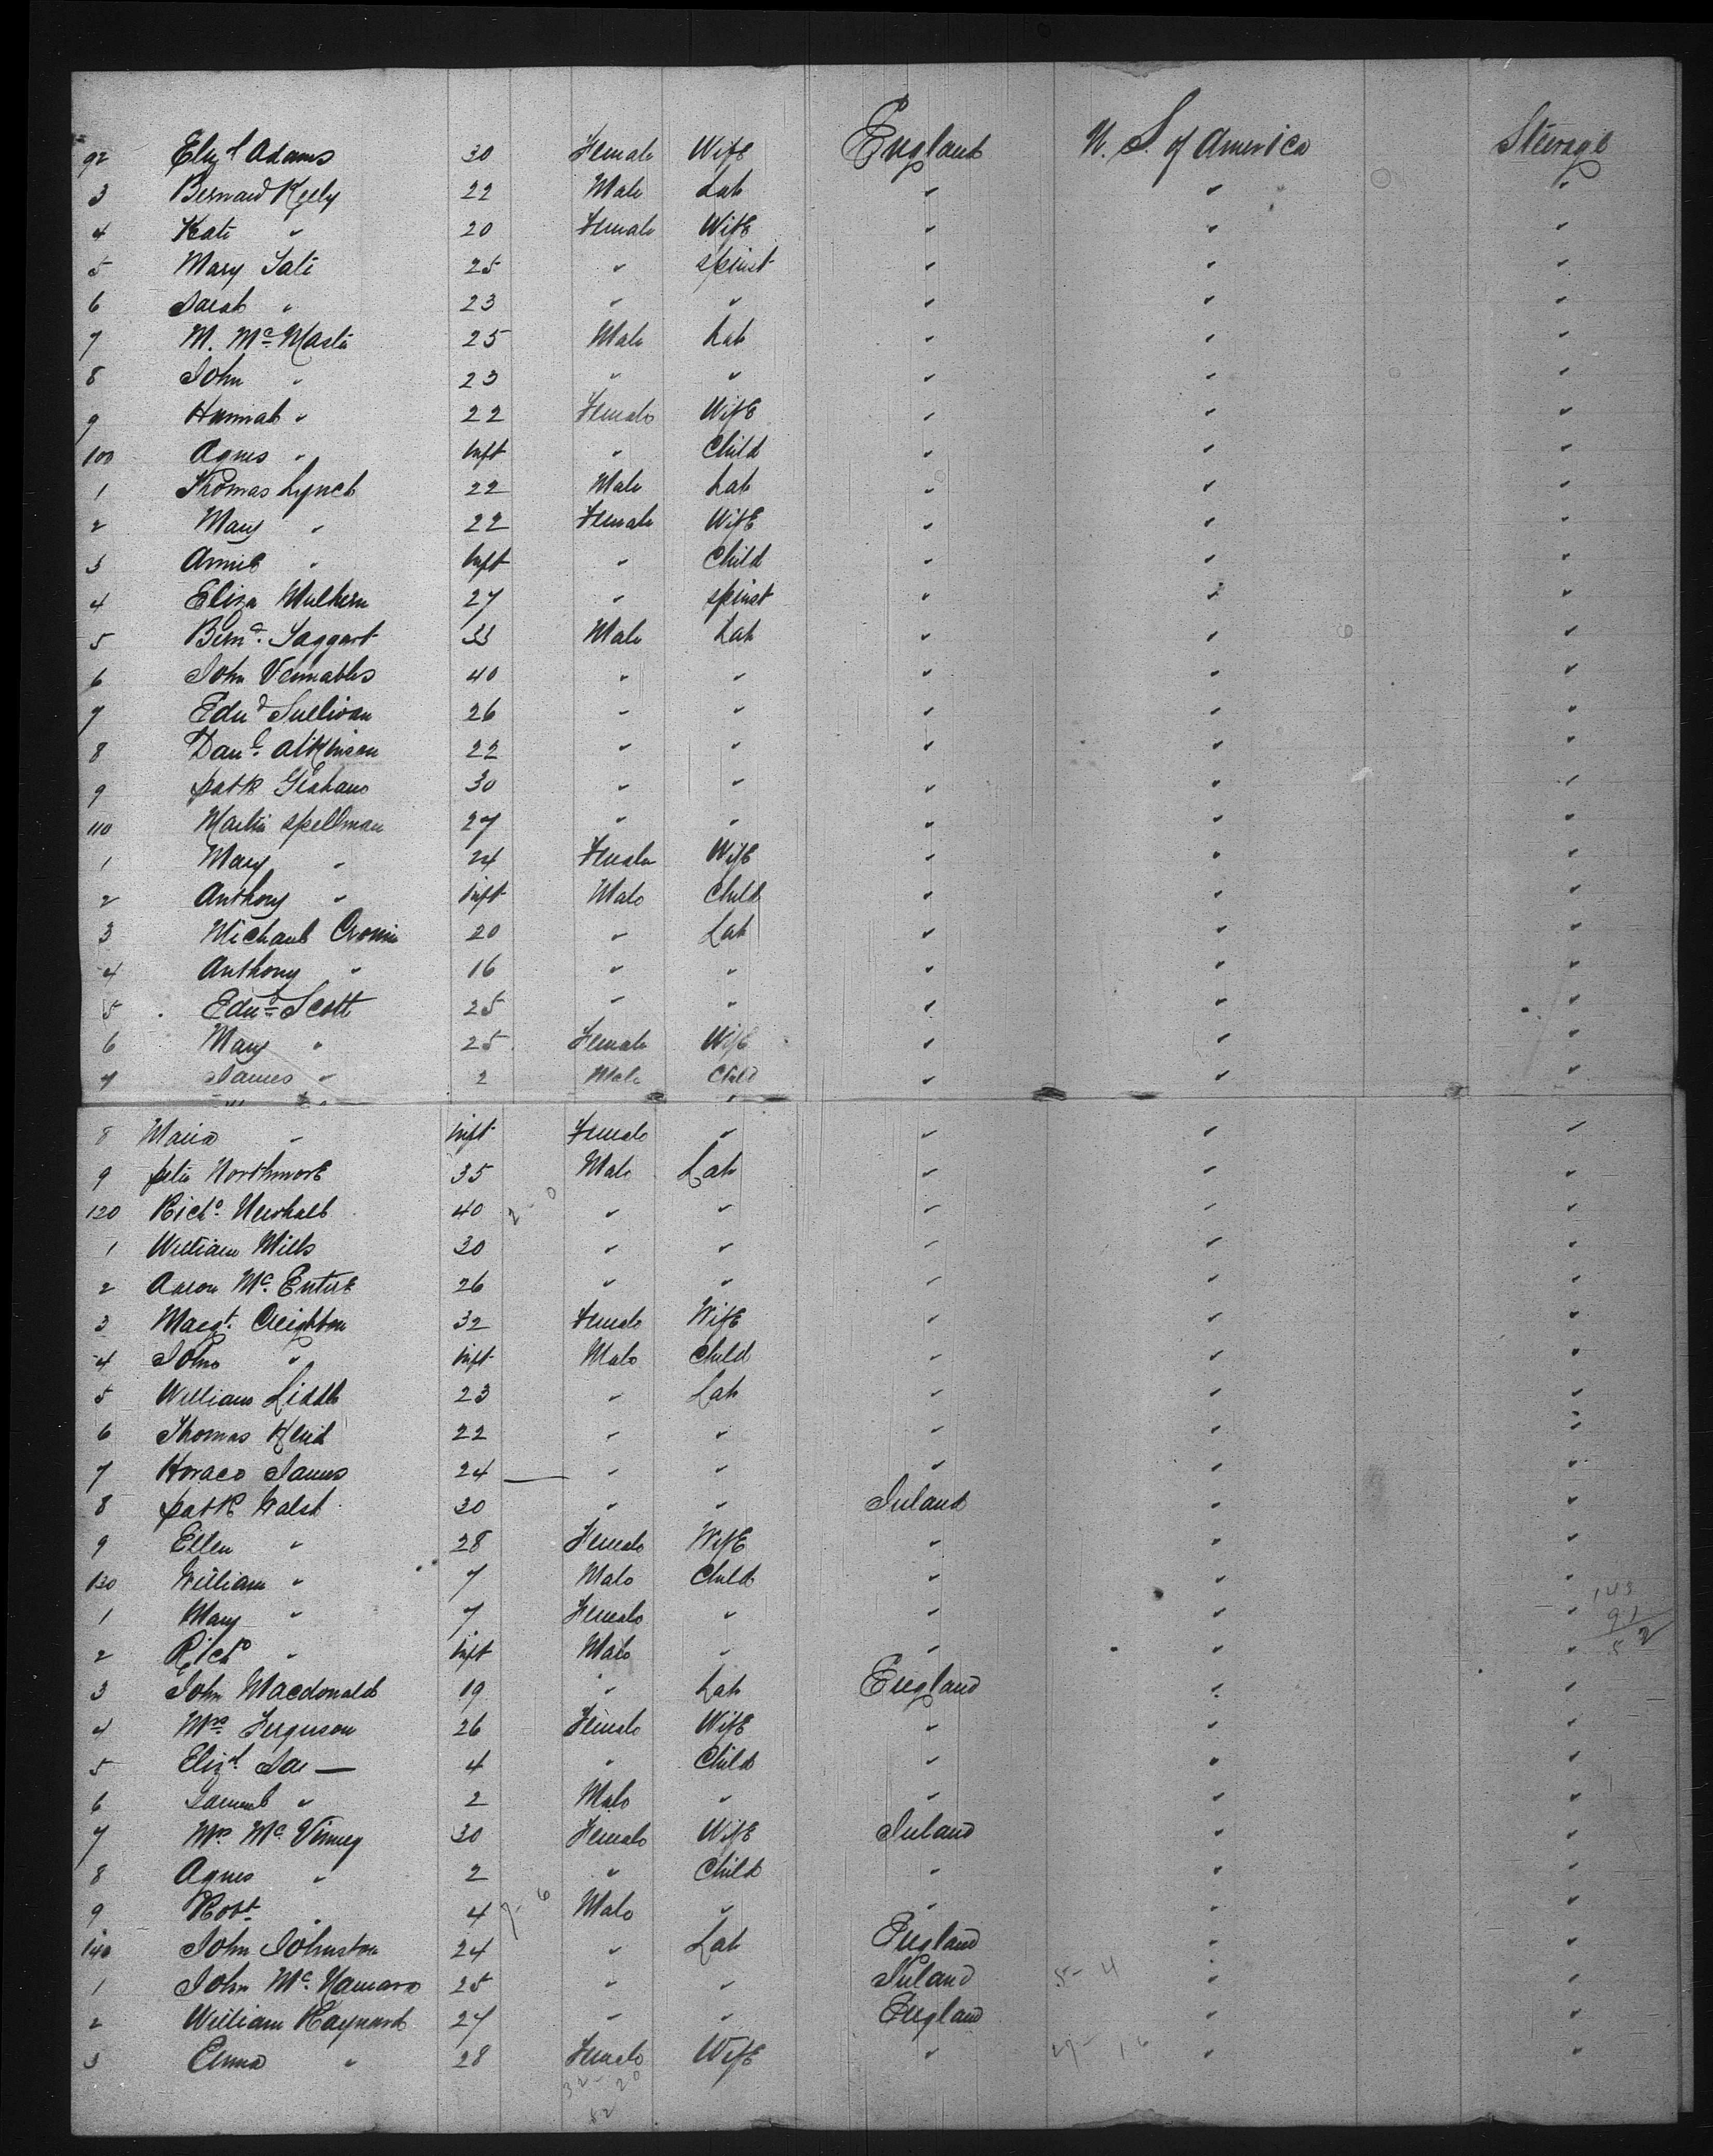 92 Eliz.t Adams 30 Female Wife England U. S. of America Steerage
3 Bernard Kelly 22 Male Lab " " "
4 Kate " 20 Female Wife " " "
5 Mary Tate 25 " Spinst " " "
6 Sarah " 23 " " " " "
7 M. Mc Master 25 Male Lab " " "
8 John " 23 " " " " "
9 Hannah " 22 Female Wife " " "
100 Agnes " Inft " Child " " "
1 Thomas Lynch 22 Male Lab " " "
2 Mary " 22 Female Wife " " "
3 Annie " Inft " Child " " "
4 Eliza Mulhern 27 " Spinst " " "
5 Bernd. Taggart 33 Male Lab " " "
6 John Vennables 40 " " " " "
7 Edwd Sullivan 26 " " " " "
8 Danl. Atkinson 22 " " " " "
9 Patk Graham 30 " " " " "
110 Martin Spellman 27 " " " " "
1 Mary " 24 Female Wife " " "
2 Anthony " Inft Male Child " " "
3 Michael Cronin 20 " Lab " " "
4 Anthony " 16 " " " " "
5 Edwd Scott 25 " " " " "
6 Mary " 25 Female Wife " " "
7 James " 2 Male Child " " "
8 Maria " Inft Female " " " "
9 Peter Northmore 35 Male Lab " " "
120 Richd. Newhall 40 " " " " "
1 William Mills 30 " " " " "
2 Aaron Mc. Entire 26 " " " " "
3 Margt. Creighton 32 Female Wife " " "
4 John " Inft Male Child " " "
5 William Liddle 23 " Lab " " "
6 Thomas Reid 22 " " " " "
7 Horace James 24 " " " " "
8 Patk Walsh 30 " " Ireland " "
9 Ellen " 28 Female Wife " " "
130 William " 7 Male Child " " "
1 Mary " 7 Female " " " "
2 Richd " Inft Male " " " "
3 John Macdonald 19 " Lab England " "
4 Mrs Ferguson 26 Female Wife " " "
5 Eliz.t Do — 4 " Child " " "
6 Samuel " 2 Male " " " "
7 Mrs Mc. Vinney 30 Female Wife Ireland " "
8 Agnes " 2 " Child " " "
9 Robt " 4 Male " " " "
140 John Johnston 24 " Lab England " "
1 John Mc. Namara 25 " " Ireland " "
2 William Raynard 27 " " England " "
3 Emma " 28 Female Wife " " "
32 - 20
52